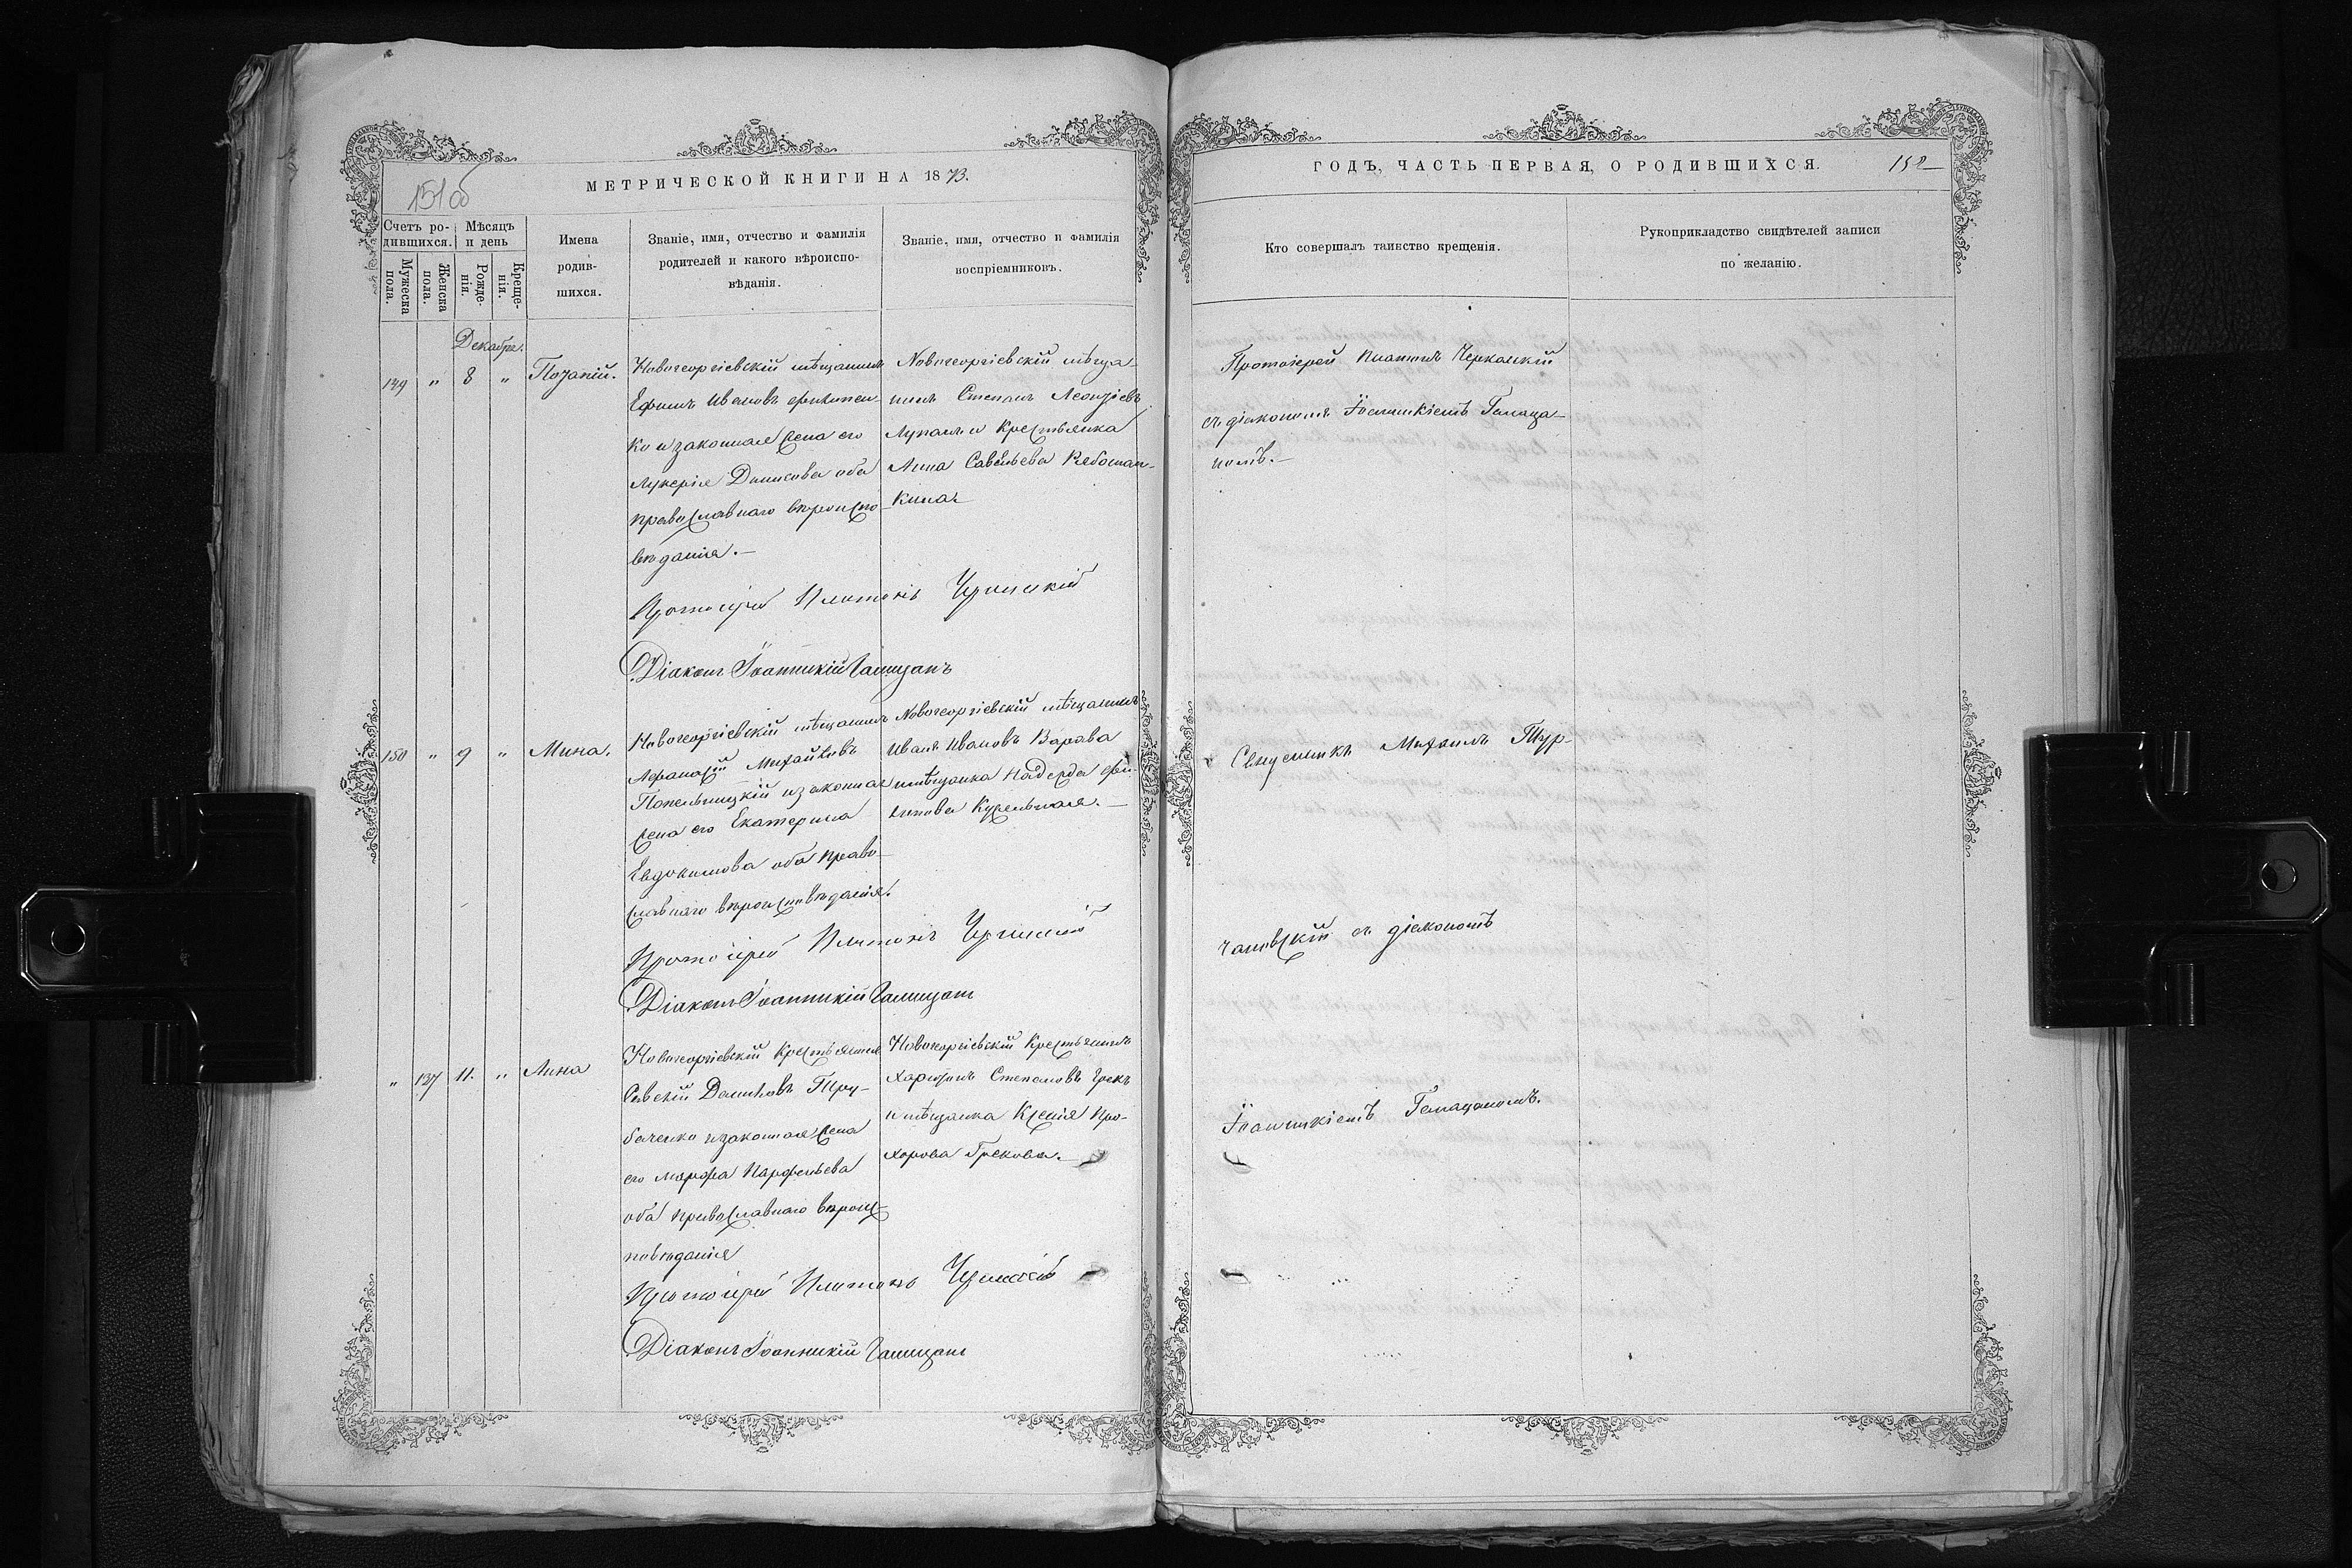 МЕТРИЧЕСКОЙ КНИГИ НА 1873.
151 об
Счетъ родившихся.
Мужеска пола.
Женска пола.
Мѣсяцъ и день
Рожденія.
Крещенія.
Имена родившихся.
Званіе, имя, отчество и фамилія родителей и какого вѣроисповѣданія.
Званіе, имя, отчество и фамилія воспріемниковъ.
Декабря.
149 " 8 "
Новогеоргіевскій мѣщанинъ
Ефимъ Ивановъ
ко и законная жена его
Лукерія Данилова оба
православнаго вѣроиспо-
вѣданія.—
Новогеоргіевскій мѣща-
нинъ Степанъ Леонтіевъ
и Крестьянка
Анна Савельева
кина
Протоіерей Платонъ
Діаконъ Іоанникій Галицанъ
150 " 9 " Мина.
Новогеоргіевскій мѣщанинъ
Афанасій Михайловъ
Попельницкій и законная
жена его Екатерина
Евдокимова оба право-
славнаго вѣроисповѣданія.
Новогеоргіевскій мѣщанинъ
Иванъ Ивановъ Варава
мѣщанка Надежда Фи-
липова
Протоіерей Платонъ
Діаконъ Іоанникій Галицанъ
" 137 11. " Анна
Новогеоргіевскій Крестьянинъ
Савелій Даниловъ Тру-
баченко и законная жена
его Марфа Парфеньева
оба православнаго вѣроис-
повѣданія
Новогеоргіевскій Крестьянинъ
Харитонъ Степановъ Грекъ
и мѣщанка Ксенія Про-
хорова Грекова.—
Протоіерей Платонъ
Діаконъ Іоанникій Галицанъ
ГОДЪ, ЧАСТЬ ПЕРВАЯ, О РОДИВШИХСЯ.
152
Кто совершалъ таинство крещенія.
Рукоприкладство свидѣтелей записи по желанію.
Протоіерей Платонъ Черкаскій
съ діакономъ Іоанникіемъ Галица-
номъ.—
Священникъ Михаилъ Тур-
чановскій съ діакономъ
Іоанникіемъ Галицаномъ.